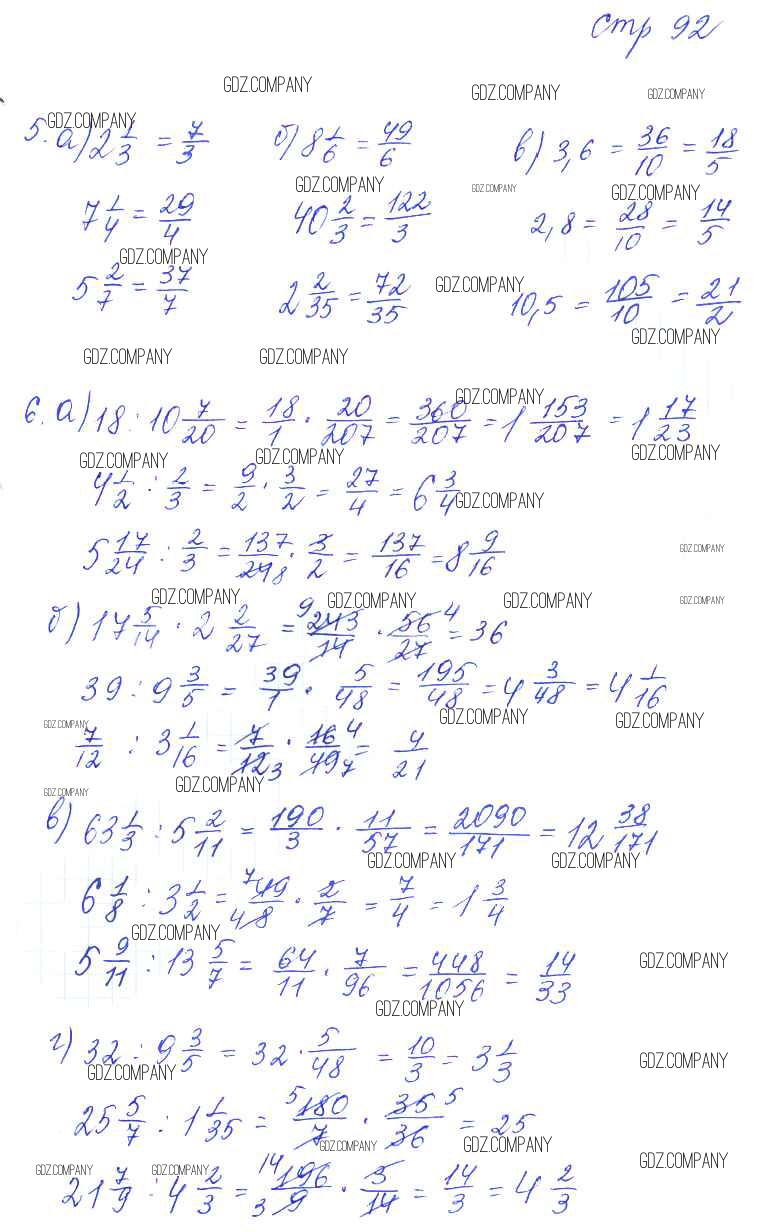 стр 92
GDZ.COMPANY GDZ.COMPANY GDZ.COMPANY
GDZ.COMPANY
5. а) 2 1/3 = 7/3 б) 8 1/6 = 49/6 в) 3,6 = 36/10 = 18/5
GDZ.COMPANY GDZ.COMPANY GDZ.COMPANY
7 1/4 = 29/4 40 2/3 = 122/3 2,8 = 28/10 = 14/5
GDZ.COMPANY
5 2/7 = 37/7 2 2/35 = 72/35 10,5 = 105/10 = 21/2
GDZ.COMPANY
GDZ.COMPANY
GDZ.COMPANY GDZ.COMPANY
GDZ.COMPANY
6. а) 18 : 10 7/20 = 18/1 · 20/207 = 360/207 = 1 153/207 = 1 17/23
GDZ.COMPANY GDZ.COMPANY GDZ.COMPANY
4 1/2 : 2/3 = 9/2 · 3/2 = 27/4 = 6 3/4
GDZ.COMPANY
5 17/24 : 2/3 = 137/24 8 · 3/2 = 137/16 = 8 9/16
GDZ.COMPANY
GDZ.COMPANY GDZ.COMPANY GDZ.COMPANY GDZ.COMPANY
б) 17 5/14 · 2 2/27 = 9 243/14 · 56 4/27 = 36
39 : 9 3/5 = 39/1 · 5/48 = 195/48 = 4 3/48 = 4 1/16
GDZ.COMPANY GDZ.COMPANY GDZ.COMPANY
7/12 : 3 1/16 = 7/12 3 · 16 4/49 7 = 4/21
GDZ.COMPANY
GDZ.COMPANY
в) 63 1/3 : 5 2/11 = 190/3 · 11/57 = 2090/171 = 12 38/171
GDZ.COMPANY GDZ.COMPANY
6 1/8 : 3 1/2 = 7 49/4 8 · 2/7 = 7/4 = 1 3/4
GDZ.COMPANY
5 9/11 : 13 5/7 = 64/11 · 7/96 = 448/1056 = 14/33
GDZ.COMPANY
GDZ.COMPANY
г) 32 : 9 3/5 = 32 · 5/48 = 10/3 = 3 1/3
GDZ.COMPANY GDZ.COMPANY
25 5/7 : 1 1/35 = 5 180/7 · 35 5/36 = 25
GDZ.COMPANY GDZ.COMPANY
GDZ.COMPANY GDZ.COMPANY GDZ.COMPANY
21 7/9 : 4 2/3 = 14 196/3 9 · 3/14 = 14/3 = 4 2/3